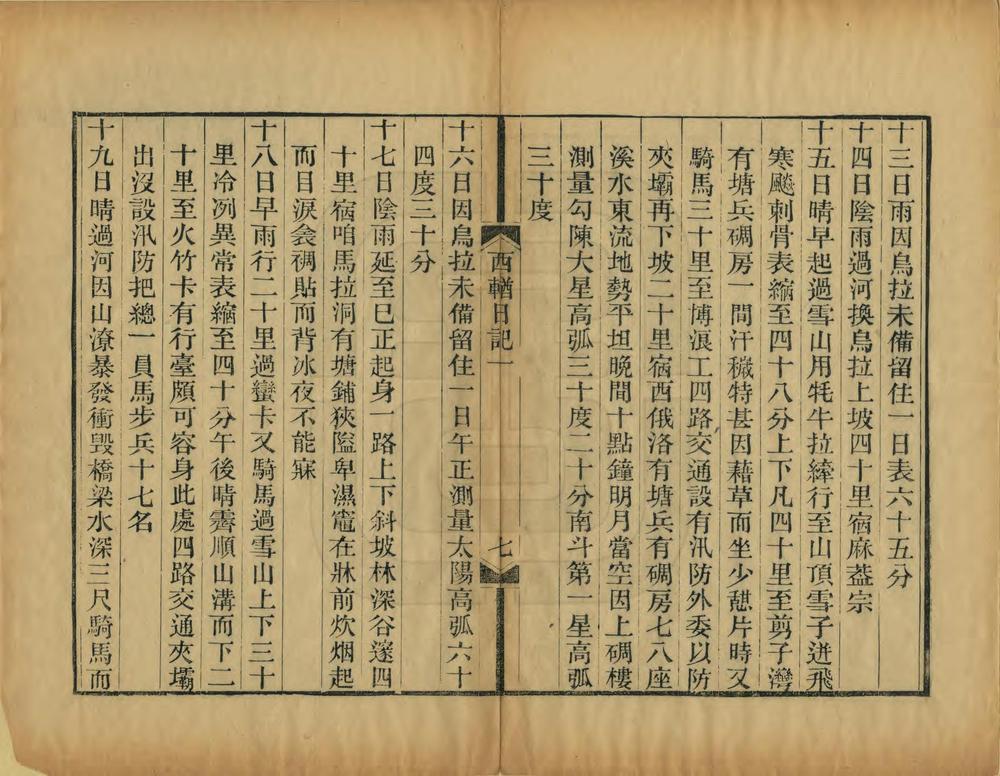 十三日雨因烏拉未備留住一日表六十五分
十四日陰雨過河換烏拉上坡四十里宿麻葢宗
十五日晴早起過雪山用牦牛拉縴行至山頂雪子迸飛
寒飈刺骨表縮至四十八分上下凡四十里至剪子灣
有塘兵碉房一間汗穢特甚因藉草而坐少憇片時又
騎馬三十里至博浪工四路交通設有汛防外委以防
夾壩再下坡二十里宿西俄洛有塘兵有碉房七八座
溪水東流地勢平坦晚間十點鐘明月當空因上碉樓
測量勾陳大星高弧三十度二十分南斗第一星高弧
三十度
西輶日記一
七
十六日因烏拉未備留住一日午正測量太陽高弧六十
四度三十分
十七日陰雨延至巳正起身一路上下斜坡林深谷邃四
十里宿咱馬拉洞有塘鋪狹隘卑濕竈在牀前炊烟起
而目淚衾裯貼而背冰夜不能寐
十八日早雨行二十里過蠻卡又騎馬過雪山上下三十
里冷冽異常表縮至四十分午後晴霽順山溝而下二
十里至火竹卡有行臺頗可容身此處四路交通夾壩
出沒設汛防把總一員馬步兵十七名
十九日晴過河因山潦暴發衝毀橋梁水深三尺騎馬而